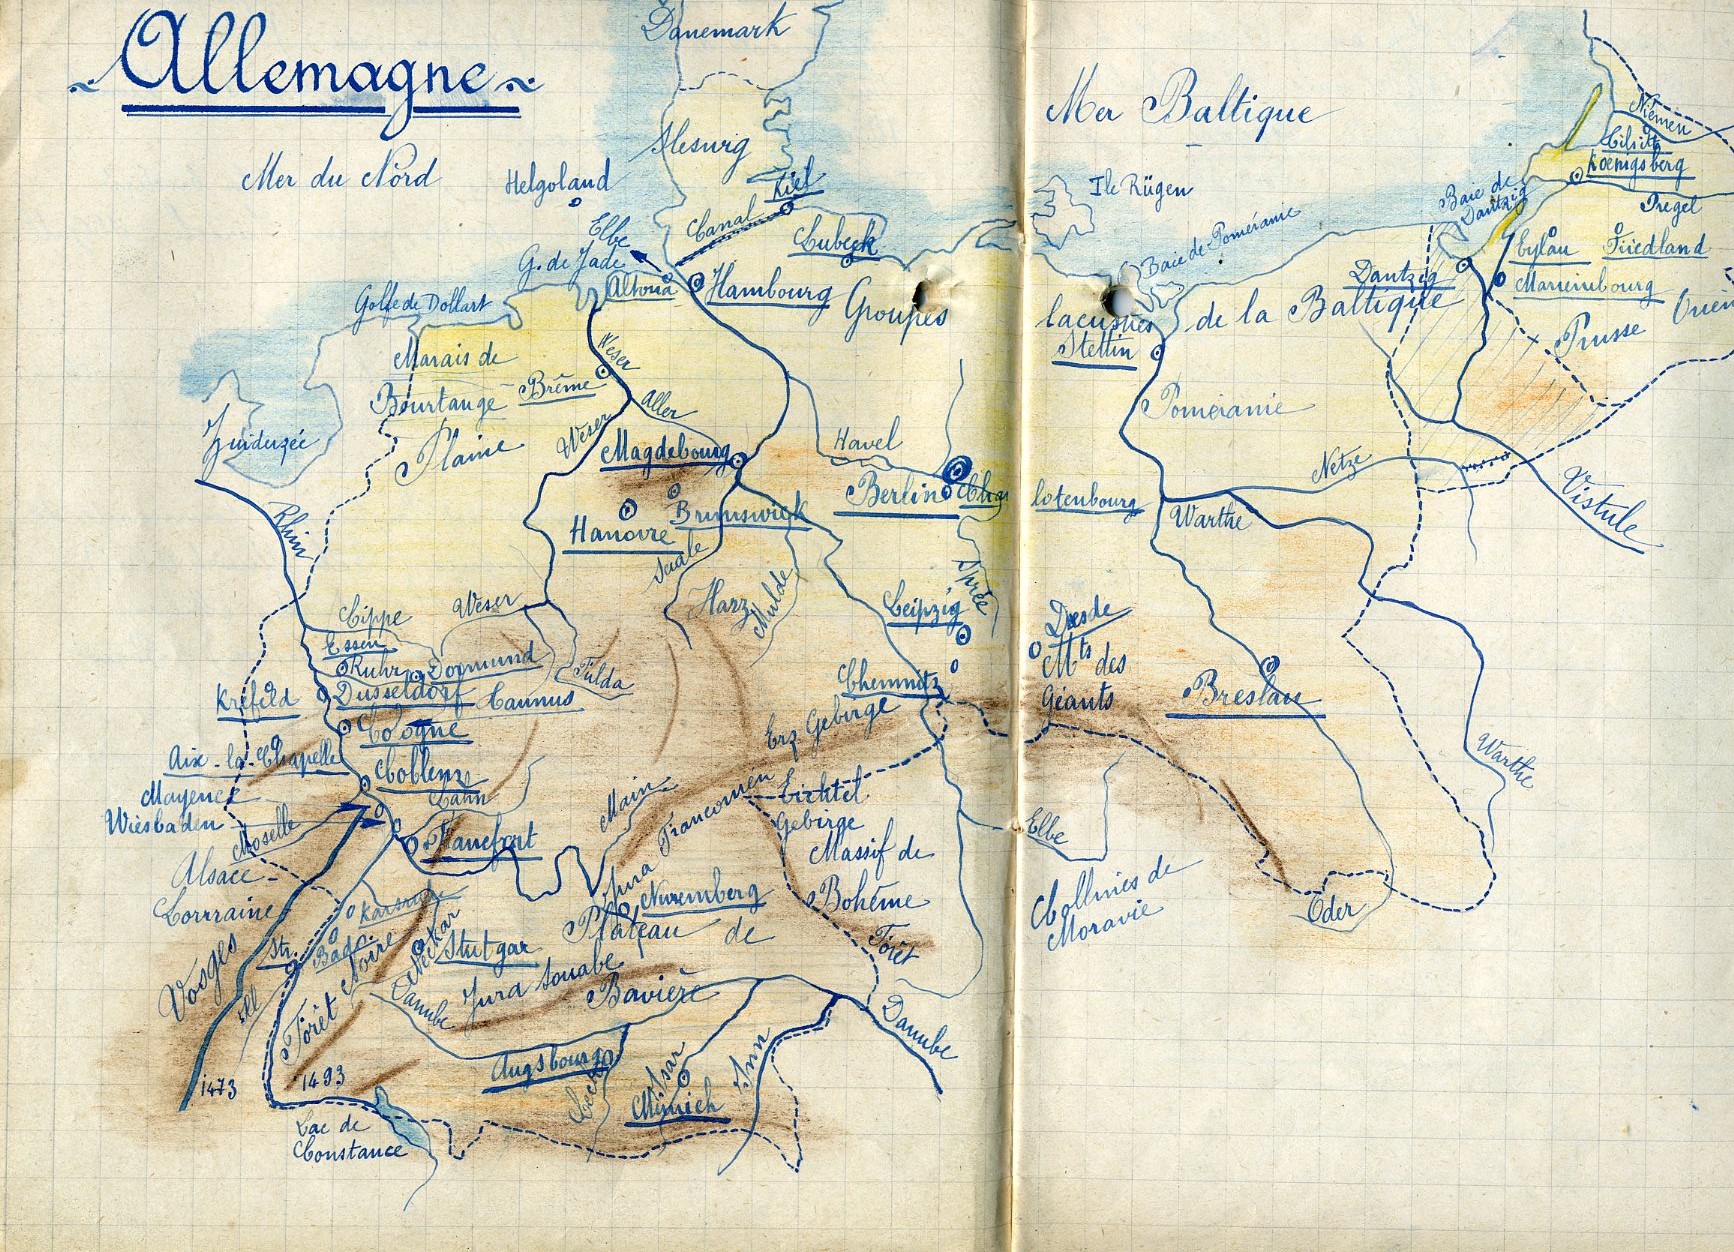 Allemagne
Danemark
Mer du Nord
Helgoland
Slesvig
Kiel
Canal
Elbe
G. de Jade
Lubeck
Altona
Hambourg
Golfe de Dollart
Groupes
lacustres
de la Baltique
Mer Baltique
Ile Rügen
Baie de Poméranie
Baie de
Dantzig
Niémen
Tilsitt
Koenigsberg
Pregel
Eylau
Friedland
Dantzig
Marienbourg
Prusse
Stettin
Poméranie
Marais de
Bourtange
Brême
Weser
Aller
Zuiderzée
Plaine
Weser
Magdebourg
Havel
Berlin
Char
lotenbourg
Netze
Warthe
Vistule
Rhin
Hanovre
Brunswick
Saale
Harz
Mulde
Sprée
Leipzig
Lippe
Weser
Essen
Ruhr
Dormund
Fulda
Krefeld
Dusseldorf
Taunus
Cologne
Aix-la-Chapelle
Coblenz
Mayence
Lahn
Wiesbaden
Moselle
Francfort
Main
Chemnitz
Erz Gebirge
Dresde
Mts des
Géants
Breslau
Warthe
Fichtel
Gebirge
Massif de
Bohême
Elbe
Collines de
Moravie
Oder
Alsace-
Lorrraine
Vosges
Ill
Str.
Karsruhe
Bade
Forêt Noire
Neckar
Stutgar
Jura Franconien
Nuremberg
Plateau de
Bavière
Jura Souabe
Danube
Forêt
Danube
Augsbourg
Lech
Isar
Inn
Munich
1473
1493
Lac de
Constance